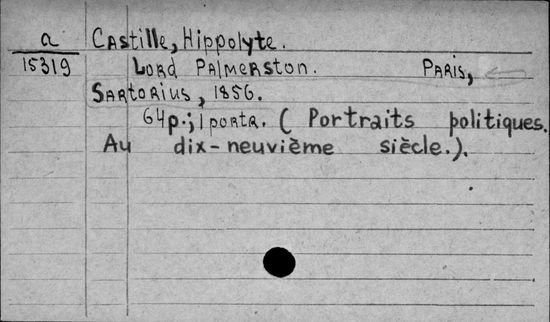 a Castille, Hippolyte.
15319 Lord Palmerston. Paris,
Sartorius, 1856.
64p.; 1 portr. (Portraits politiques.
Au dix-neuvième siècle.).